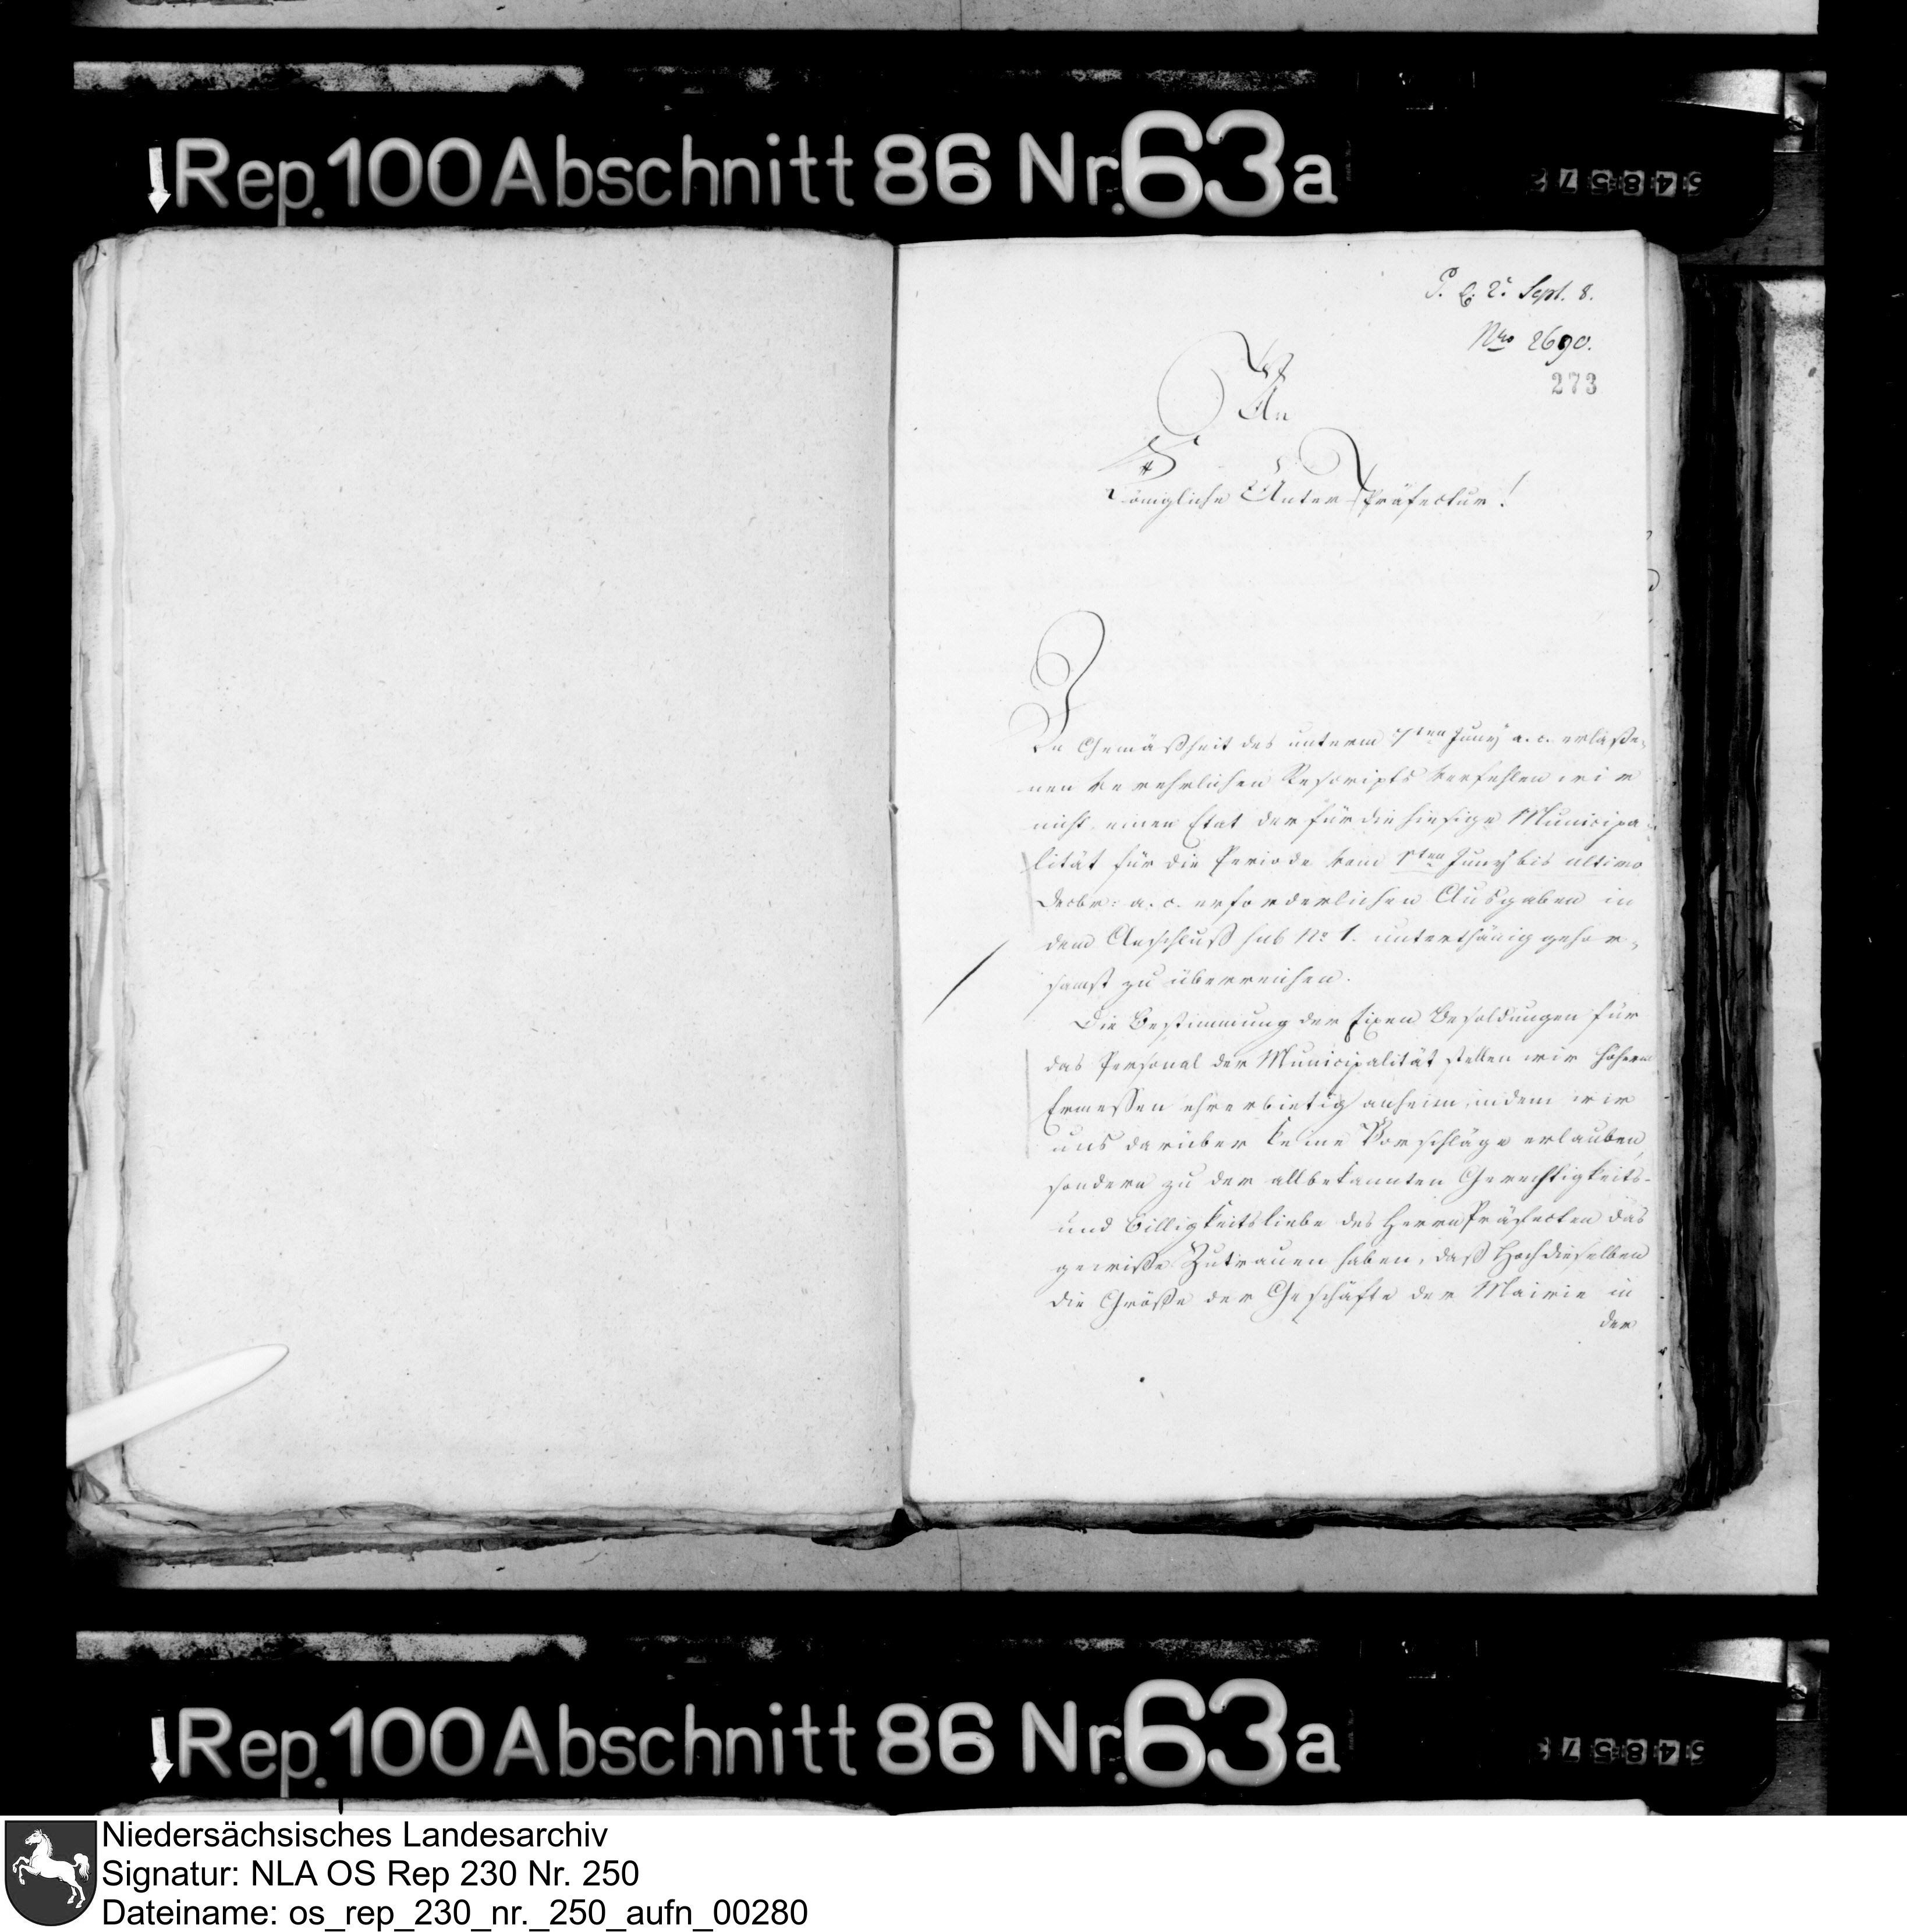 Rep. 100 Abschnitt 86 Nr. 63a
P. 2. Sept. 8.
Nro 2690.
273
An
Königliche Unter-Präfectur!
In Gemäßheit des unterm 7ten Juny a. c. erlaße-
nen verehrlichen Rescripts verfehlen wir
nicht einen Etat der für die hiesige Municipa-
lität für die Periode vom 1ten Juny bis ultimo
Decbr: a. c. erforderlichen Ausgaben in
dem Anschluß sub No 1. unterthänig gehor-
samst zu überreichen.
Die Bestimmung der fixen Besoldungen für
das Personal der Municipalität stellen wir höherm
Ermessen ehrerbietig anheim, indem wir
uns darüber keine Vorschläge erlauben,
sondern zu der allbekannten Gerechtigkeits-
und Billigkeitsliebe des Herrn Präfecten das
gewisse Zutrauen haben, daß Hochdieselben
die Größe der Geschäfte der Mairie in
der
Rep. 100 Abschnitt 86 Nr. 63a
Niedersächsisches Landesarchiv
Signatur: NLA OS Rep 230 Nr. 250
Dateiname: os_rep_230_nr._250_aufn_00280